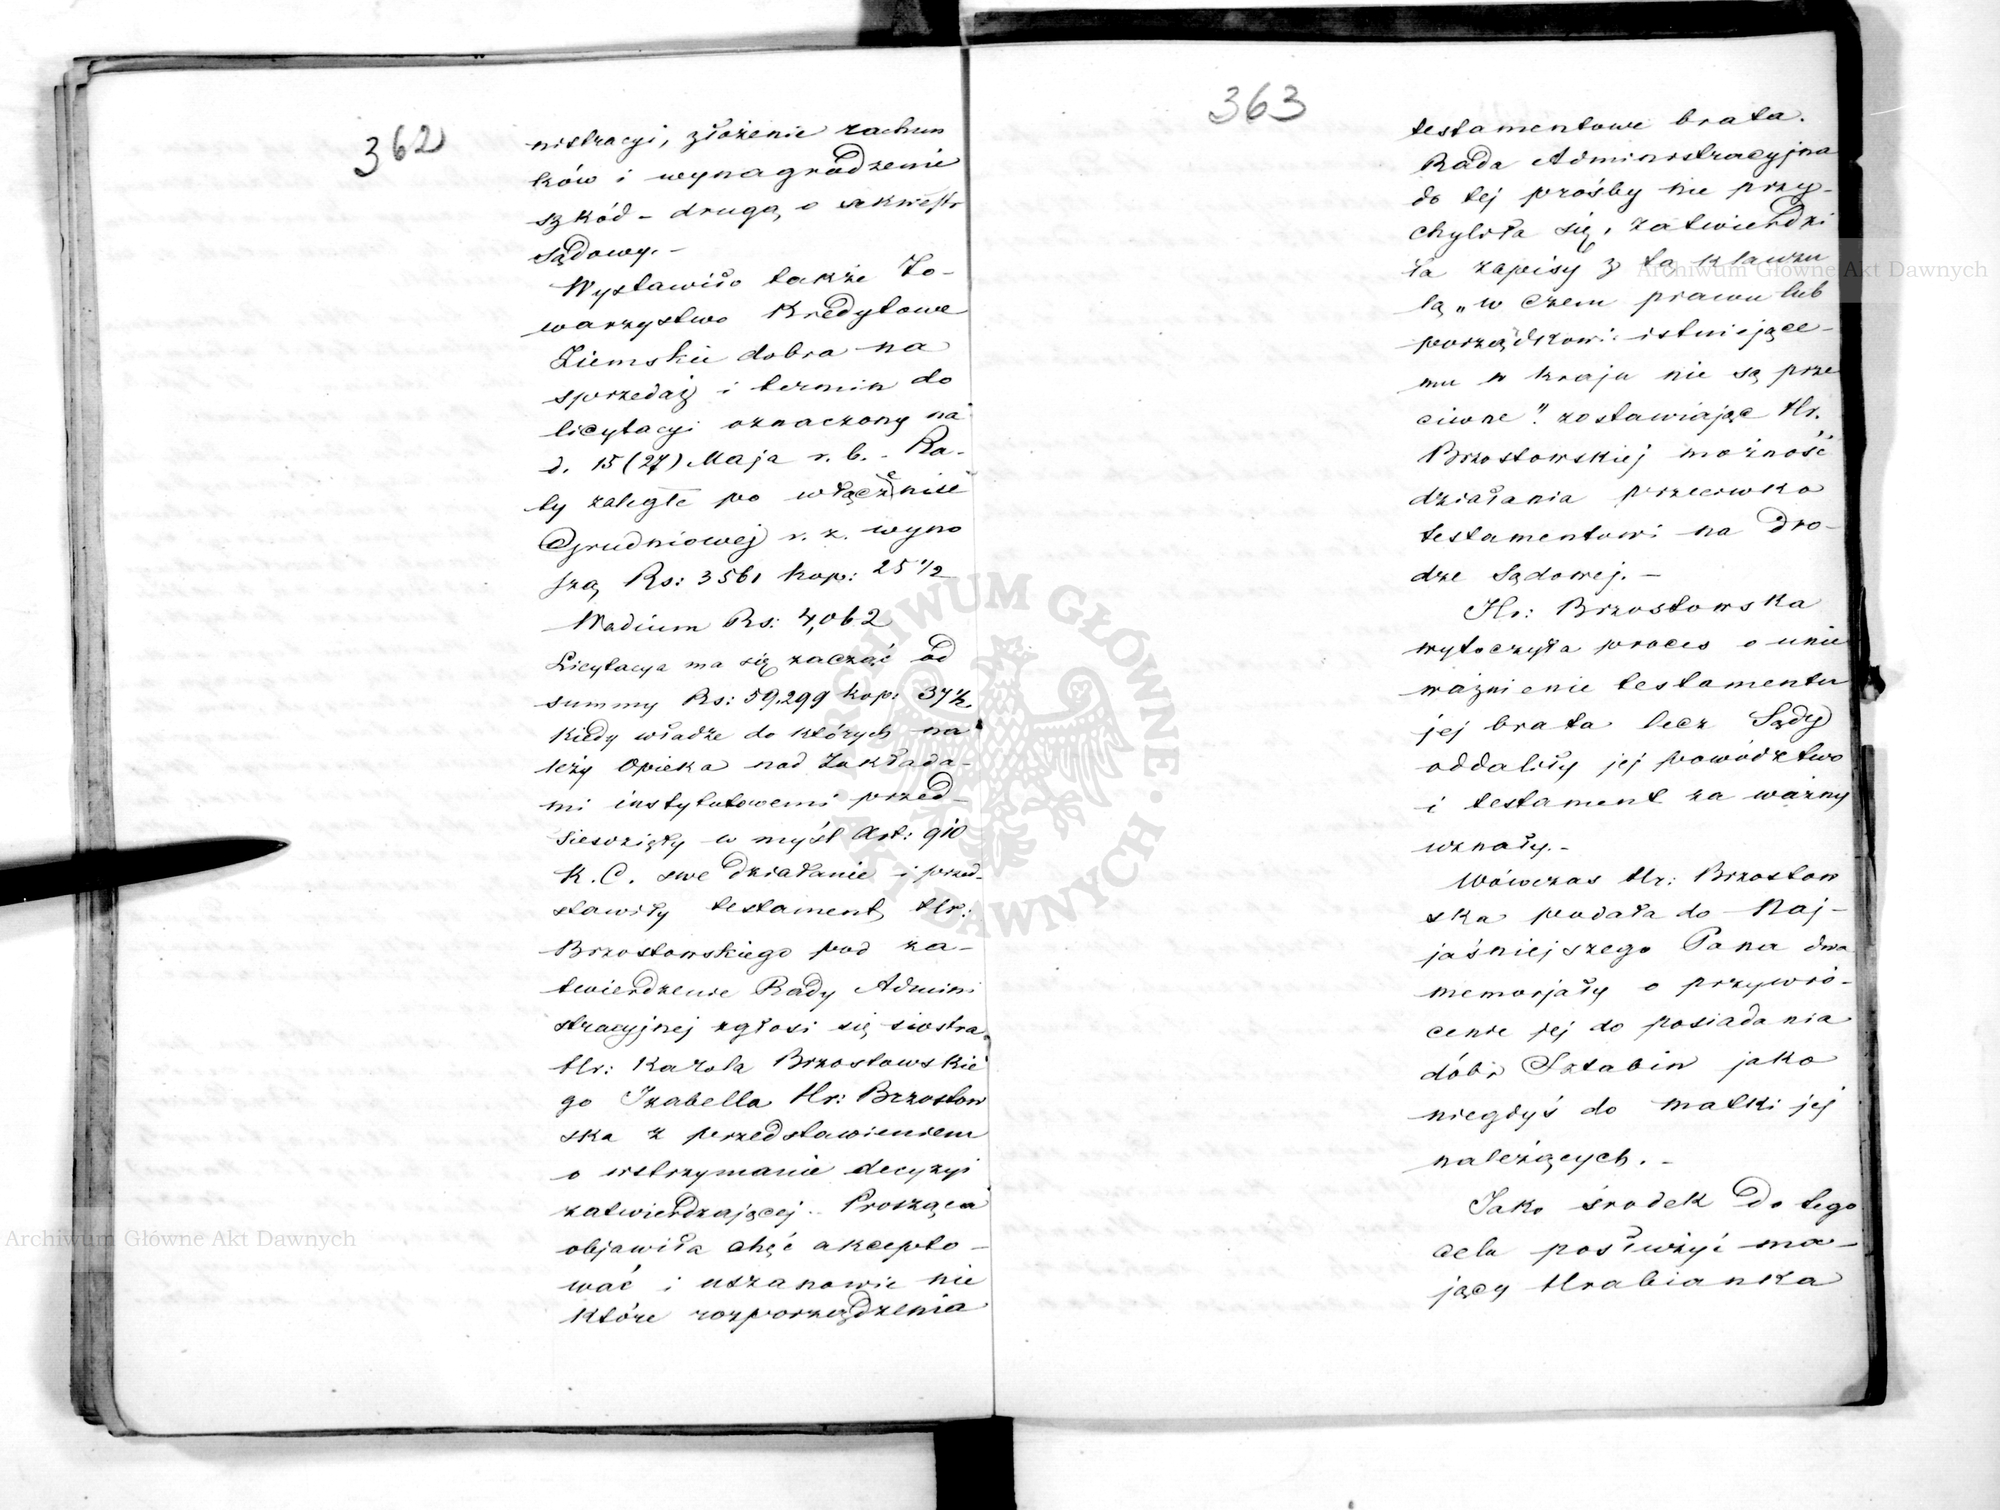 362
nistracyi, złożenie rachun
ków i wynagrodzenie
szkód – drugą o sekwestr
sądowy. –
Wystawiło także To-
warzystwo Kredytowe
Ziemskie dobra na
sprzedaż i termin do
licytacyi oznaczony na
d. 15 (27) Maja r. b. – Ra-
ty zaległe po włącznie
Grudniowej r. z. wyno
szą Rs: 3561 kop: 25 1/2
Wadium Rs: 4,062
Licytacya ma się zacząć od
summy Rs: 59,299 kop: 37 1/2.
Kiedy władze do których na
leży Opieka nad Zakłada-
mi instytutowemi przed-
sięwzięły w myśl Art: 910
K. C. swe działanie i przed-
stawiły testament Hr:
Brzostowskiego pod za-
twierdzenie Rady Admini
stracyjnej zgłosi się siostra
Hr: Karola Brzostowskie
go Izabella Hr: Brzostow
ska z przedstawieniem
o wstrzymanie decyzyi
zatwierdzającej. Prosząca
objawiła chęć akcepto-
wać i uszanowic nie
które rozporządzenia
363
testamentowe brata.
Rada Administracyjna
do tej prośby nie przy-
chyliła się, zatwierdzi
ła zapisy z tą klauzu
lą „w czem prawu lub
porządkowi istniejące-
mu w kraju nie są prze
ciwne" zostawiając Hr.
Brzostowskiej możność
działania przeciwko
testamentowi na dro-
dze sądowej. –
Hr: Brzostowska
wytoczyła proces o unie
ważnienie testamentu
jej brata lecz Sądy
oddaliły jej powództwo
i testament za ważny
uznały. –
Wówczas Hr: Brzostow
ska podała do Naj-
jaśniejszego Pana dwa
memorjały o przywró-
cenie jej do posiadania
dóbr Sztabin jako
niegdyś do matki jej
należących. –
Jako środek do tego
celu posłużyć ma-
jący Hrabianka
Archiwum Główne Akt Dawnych
Archiwum Główne Akt Dawnych
ARCHIWUM GŁÓWNE · AKT DAWNYCH ·